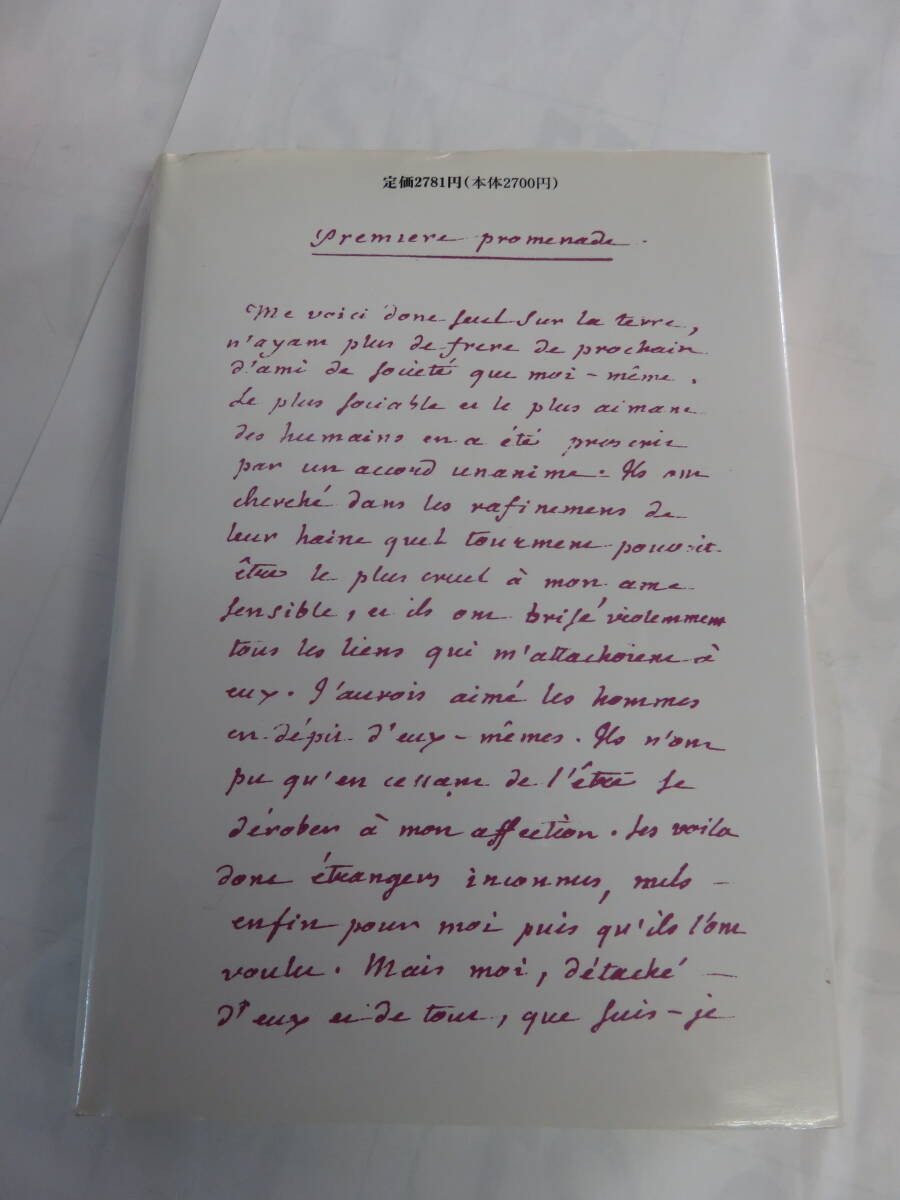 定価2781円(本体2700円)
Premiere promenade.
Me voici donc seul sur la terre,
n'ayant plus de frere de prochain
d'ami de societé que moi-même.
Le plus sociable et le plus aimant
des humains en a été proscrit
par un accord unanime. Ils ont
cherché dans les rafinemens de
leur haine quel tourment pouvoit
être le plus cruel à mon ame
sensible, et ils ont brisé violemment
tous les liens qui m'attachoient à
eux. J'aurois aimé les hommes
en dépit d'eux-mêmes. Ils n'ont
pu qu'en cessant de l'être se
dérober à mon affection. Les voila
donc étrangers inconnus, nuls
enfin pour moi puis qu'ils l'ont
voulu. Mais moi, détaché
d'eux et de tout, que suis-je